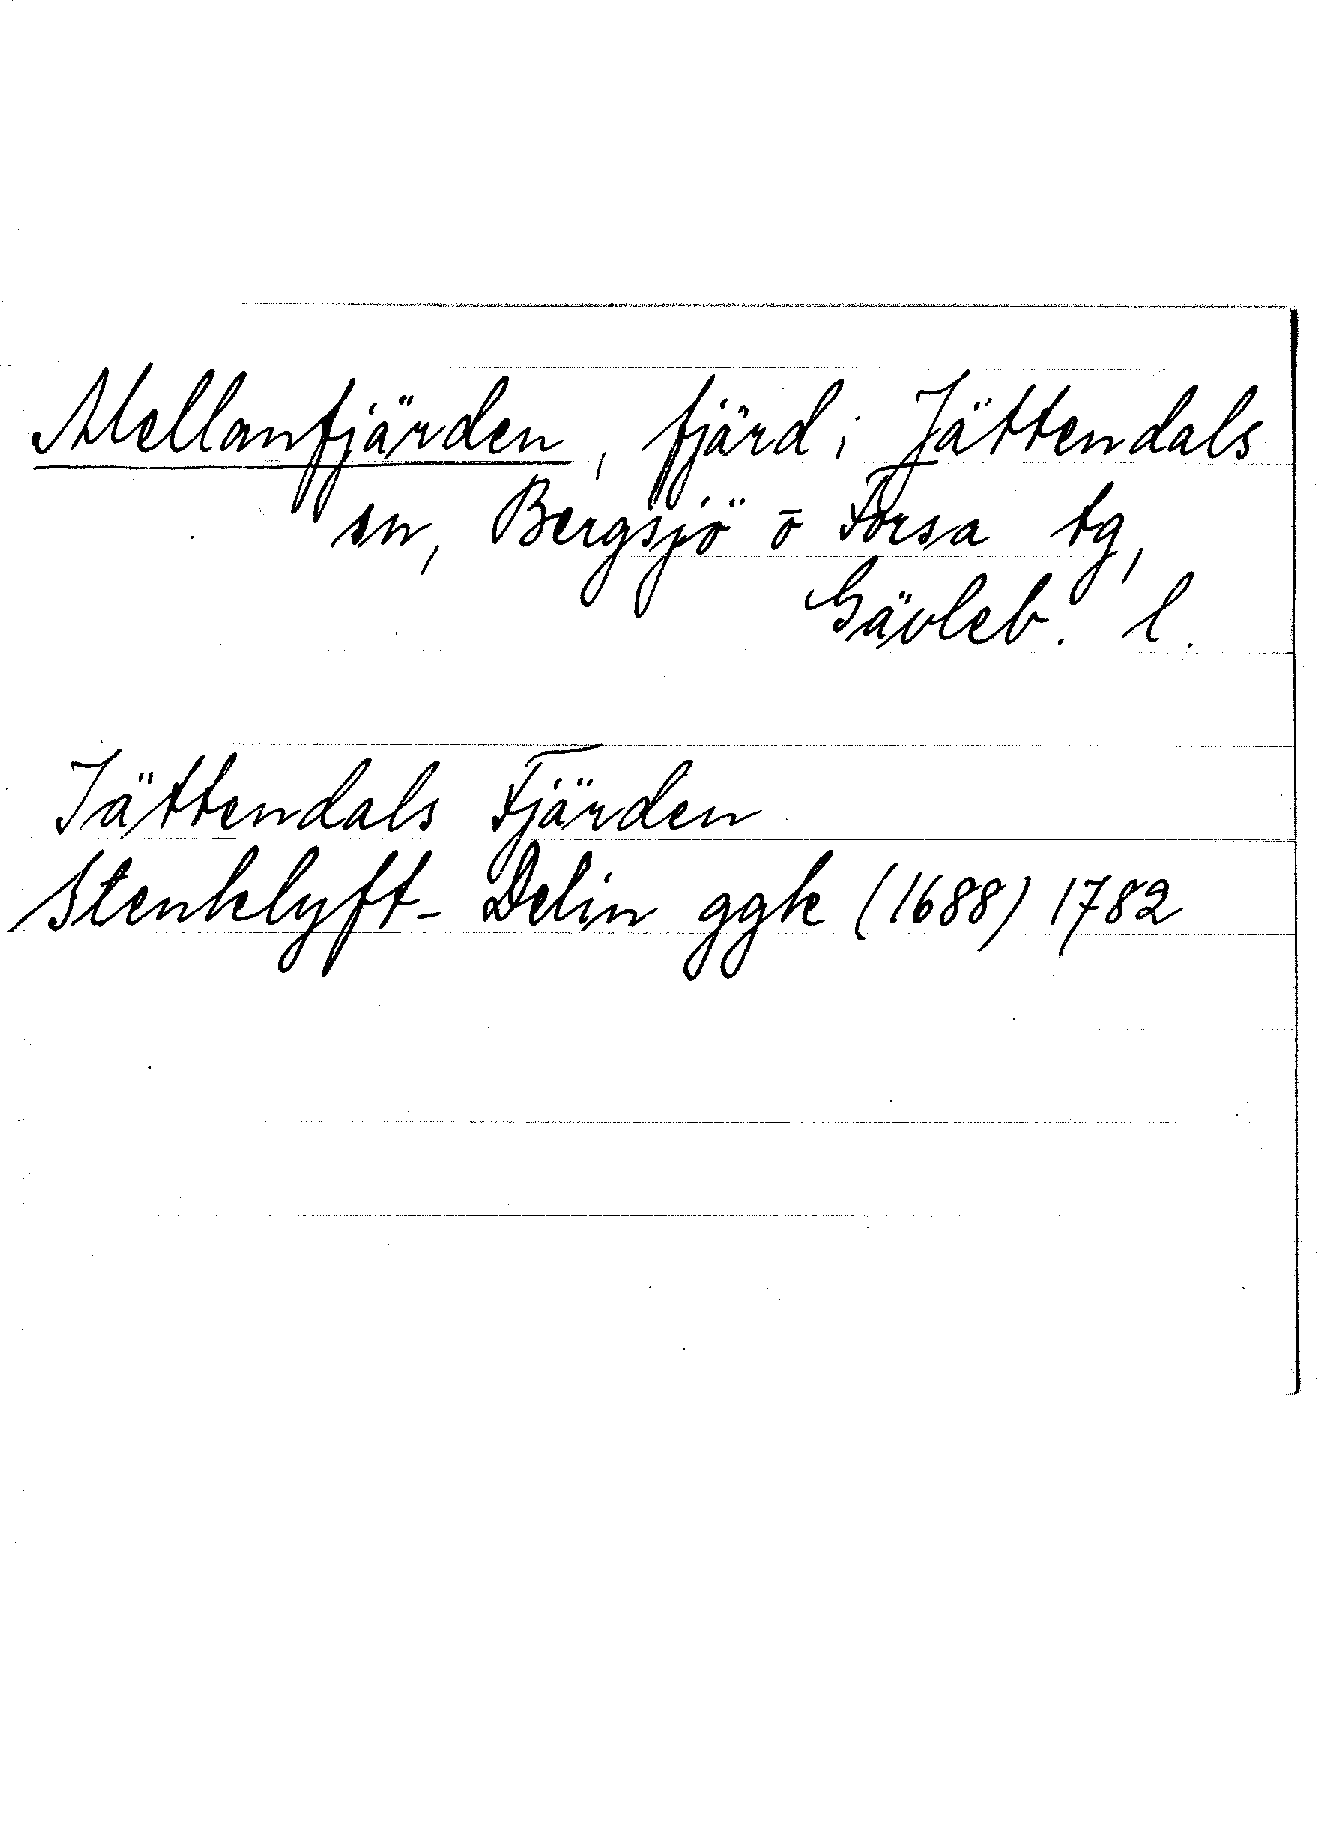 Mellanfjärden, fjärd i Jättendals
sn, Bergsjö o Forsa tg,
Gävleb. l.
Jättendals Fjärden
Stenklyft- Delin ggk (1688) 1782